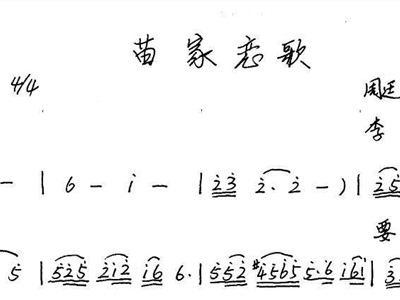 苗家恋歌
4/4 周廷
李
- | 6 - i - | 23 2. 2 - ) | 25
要
5 | 525 212 i6 6. | 552 #4565 5.6 i6i | 3